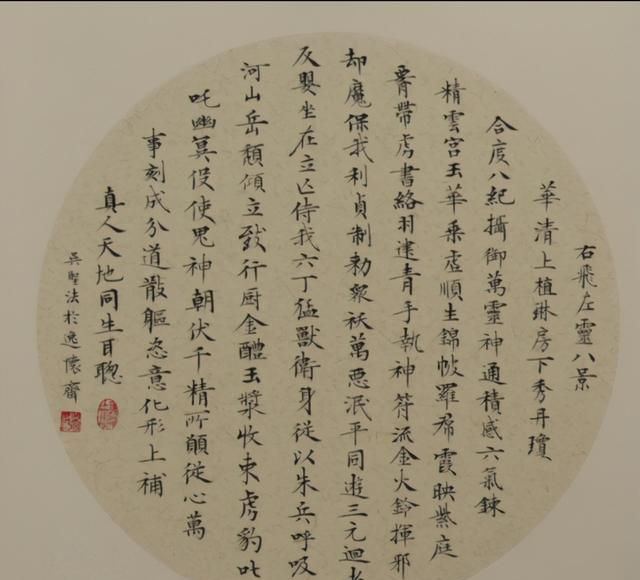 右飛左靈八景
華清上植琳房下秀丹瓊
合度八紀攝御萬靈神通積感六氣錬
精雲宮玉華乘虛順生錦帔羅帬霞映紫庭
帶虎書絡羽建青手執神符流金火鈴揮邪
却魔保我利貞制勑眾袄萬惡泯平同遊三元迴
反嬰坐在立亡侍我六丁猛獸衛身從以朱兵呼吸
河山岳頹傾立致行厨金醴玉漿收束虎豹叱
吒幽冥役使鬼神朝伏千精所願從心萬
事刻成分道散軀恣意化形上補
真人天地同生耳聰
吳聖法於逸懷齋